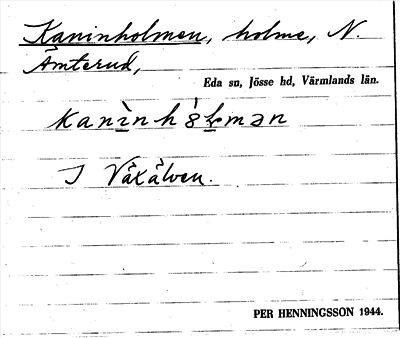 Kaninholmen, holme, N.
Åmterud,
Eda sn, Jösse hd, Värmlands län.
I Växälven.
PER HENNINGSSON 1944.